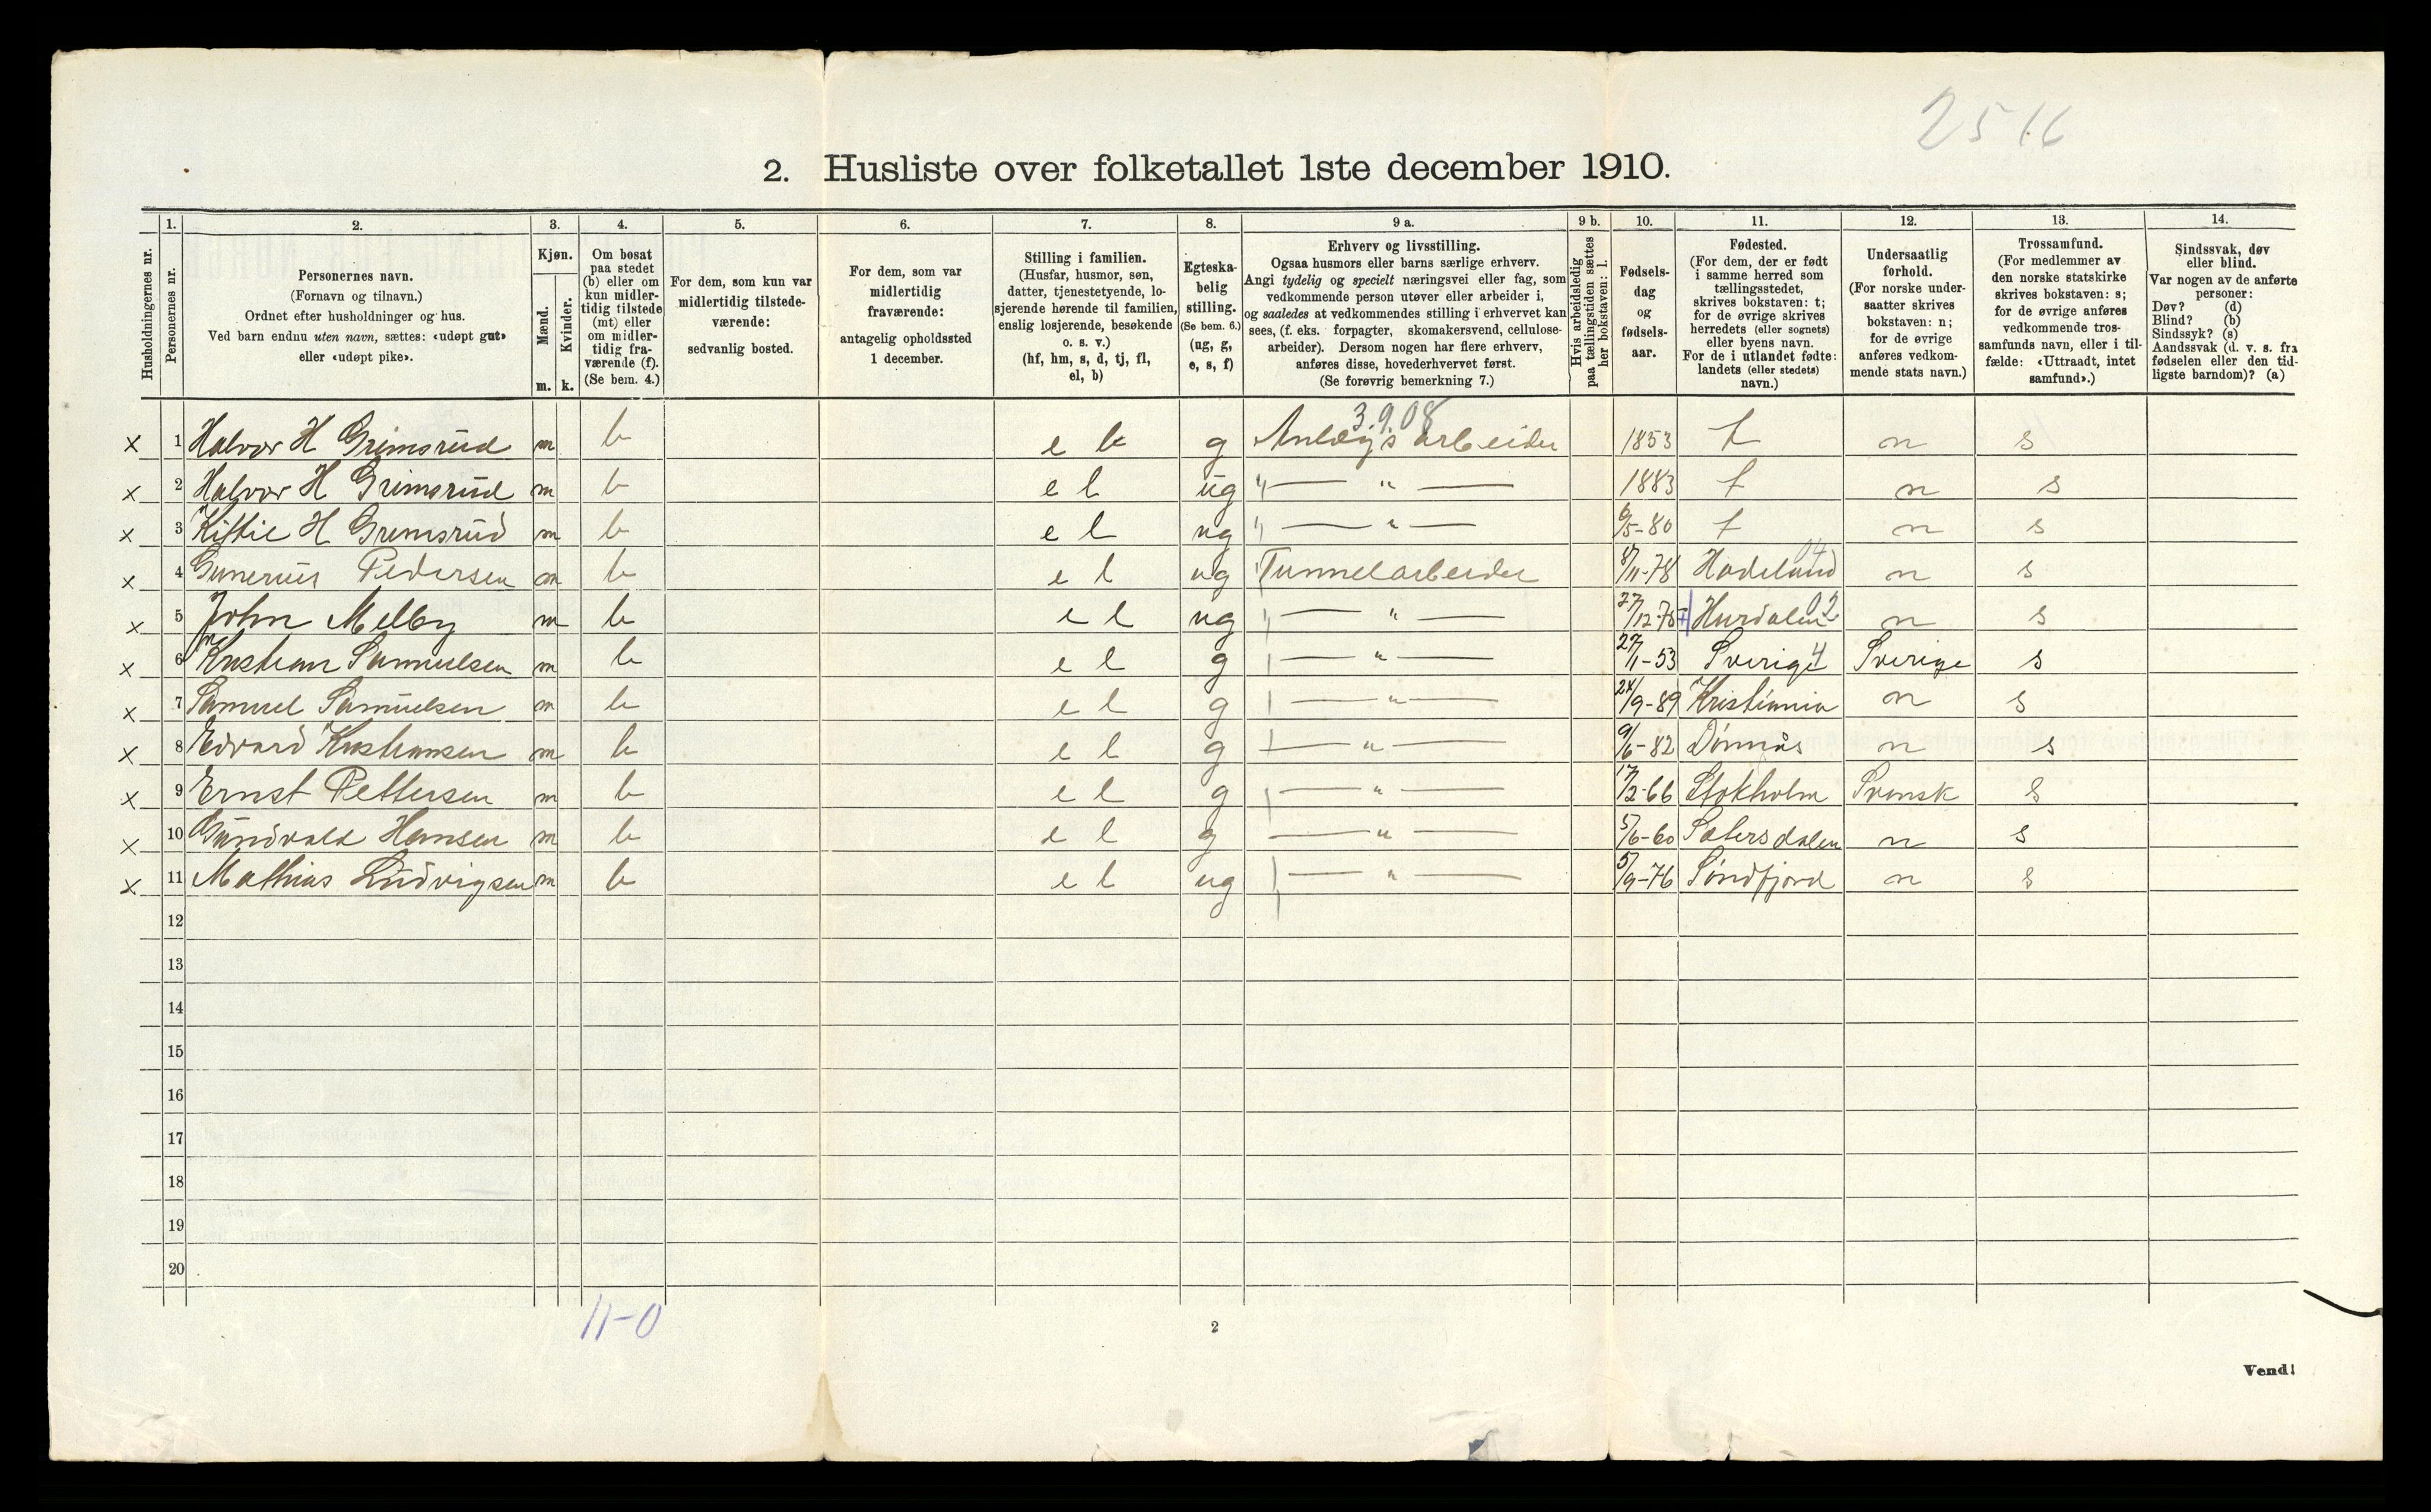 25 16
2. Husliste over folketallet 1ste december 1910.
Husholdningernes nr.
1. Personernes nr.
2. Personernes navn.
(Fornavn og tilnavn.)
Ordnet efter husholdninger og hus.
Ved barn endnu uten navn, sættes: «udøpt gut»
eller «udøpt pike».
3. Kjøn.
Mænd. m.
Kvinder. k.
4. Om bosat
paa stedet
(b) eller om
kun midler-
tidig tilstede
(mt) eller
om midler-
tidig fra-
værende (f).
(Se bem. 4.)
5. For dem, som kun var
midlertidig tilstede-
værende:
sedvanlig bosted.
6. For dem, som var
midlertidig
fraværende:
antagelig opholdssted
1 december.
7. Stilling i familien.
(Husfar, husmor, søn,
datter, tjenestetyende, lo-
sjerende hørende til familien,
enslig losjerende, besøkende
o. s. v.)
(hf, hm, s, d, tj, fl,
el, b)
8. Egteska-
belig
stilling.
(Se bem. 6.)
(ug, g,
e, s, f)
9 a. Erhverv og livsstilling.
Ogsaa husmors eller barns særlige erhverv.
Angi tydelig og specielt næringsvei eller fag, som
vedkommende person utøver eller arbeider i,
og saaledes at vedkommendes stilling i erhvervet kan
sees, (f. eks. forpagter, skomakersvend, cellulose-
arbeider). Dersom nogen har flere erhverv,
anføres disse, hovederhvervet først.
(Se forøvrig bemerkning 7.)
9 b. Hvis arbeidsledig
paa tællingstiden sættes
her bokstaven: l.
10. Fødsels-
dag
og
fødsels-
aar.
11. Fødested.
(For dem, der er født
i samme herred som
tællingsstedet,
skrives bokstaven: t;
for de øvrige skrives
herredets (eller sognets)
eller byens navn.
For de i utlandet fødte:
landets (eller stedets)
navn.)
12. Undersaatlig
forhold.
(For norske under-
saatter skrives
bokstaven: n;
for de øvrige
anføres vedkom-
mende stats navn.)
13. Trossamfund.
(For medlemmer av
den norske statskirke
skrives bokstaven: s;
for de øvrige anføres
vedkommende tros-
samfunds navn, eller i til-
fælde: «Uttraadt, intet
samfund».)
14. Sindssvak, døv
eller blind.
Var nogen av de anførte
personer:
Døv? (d)
Blind? (b)
Sindssyk? (s)
Aandssvak (d. v. s. fra
fødselen eller den tid-
ligste barndom)? (a)
3.9.08
x 1 Halvor H Grimsrud m b e l g Anlægs arbeider 1853 t n s
x 2 Halvor H Grimsrud m b e l ug " — " — 1883 t n s
x 3 Kittil H Grimsrud m b e l ug " — " — 6/5-80 t n s
x 4 Gunerius Pedersen m b e l ug Tunnelarbeider 8/11-78 Hadeland 04 n s
x 5 John Melby m b e l ug " — " — 27/12-75 Hurdalen 02 n s
x 6 Kristian Samuelsen m b e l g " — " — 27/1-53 Sverige 4 Sverige s
x 7 Samuel Samuelsen m b e l g " — " — 24/9-89 Kristiania n s
x 8 Edvard Kristiansen m b e l g " — " — 9/6-82 Dønnæs n s
x 9 Ernst Pettersen m b e l g " — " — 17/2-66 Stokholm Svensk s
x 10 Gundvald Hansen m b e l g — " — 5/6-60 Sætersdalen n s
x 11 Mathias Ludvigsen m b e l ug " — " — 5/9-76 Søndfjord n s
12
13
14
15
16
17
18
19
20
11-0
2
Vend!